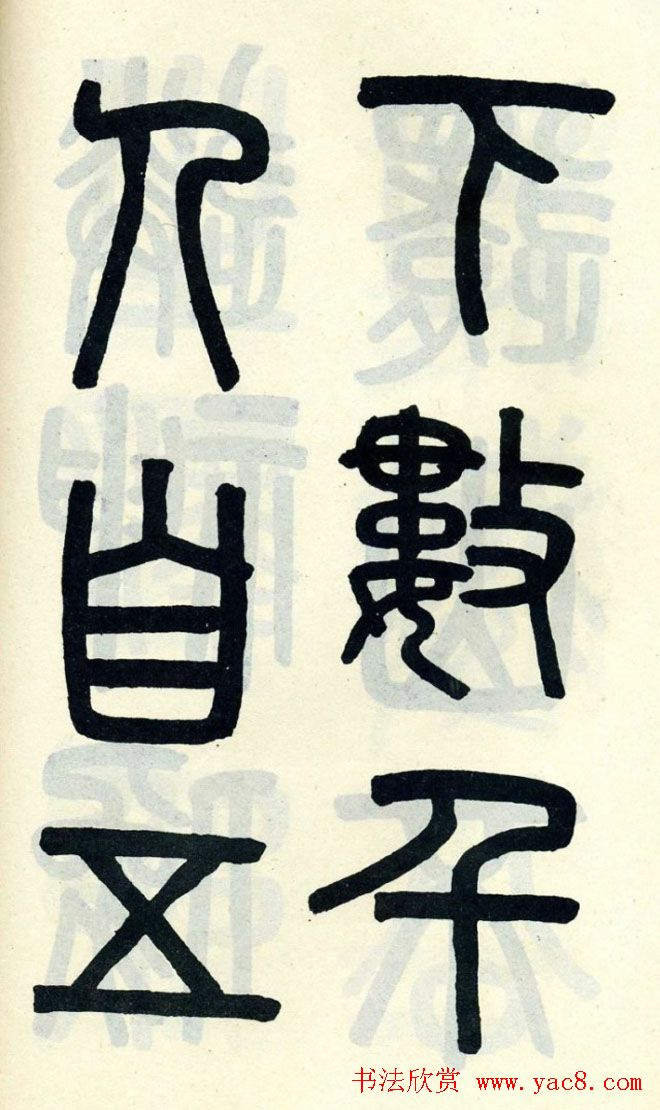 下數千
人自五
书法欣赏 www.yac8.com